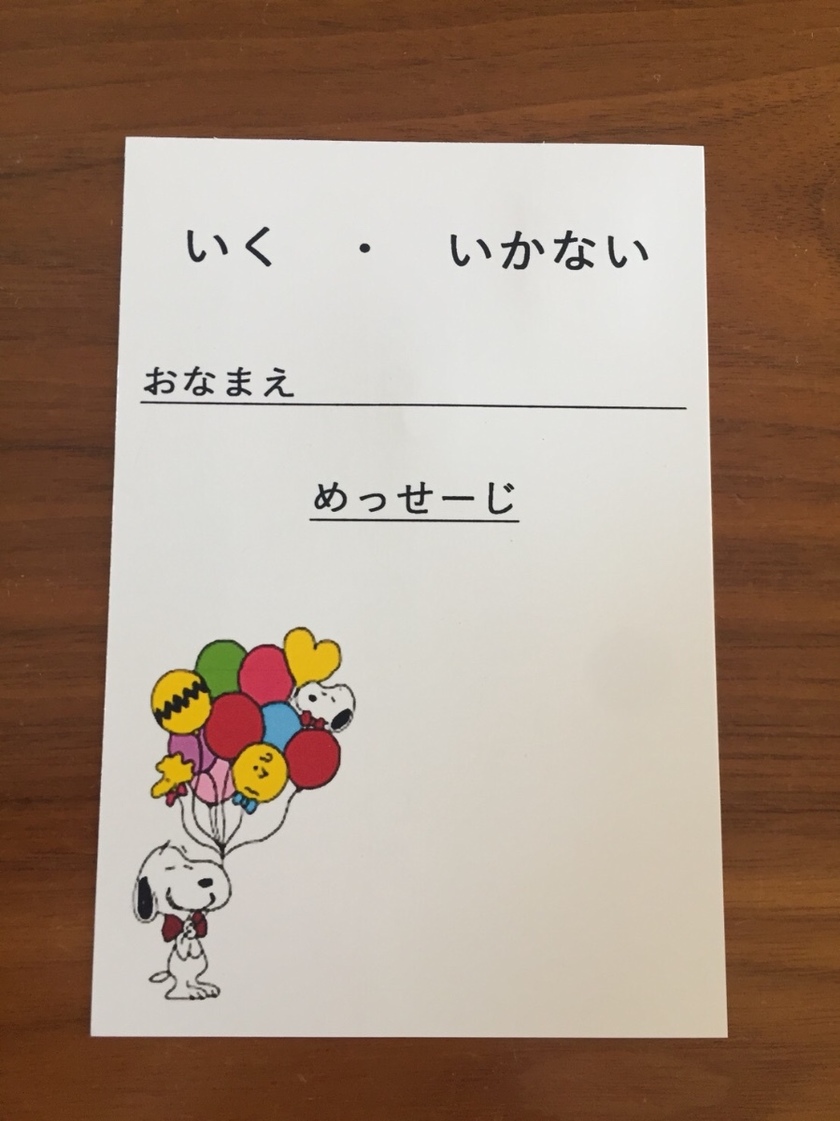 いく ・ いかない
おなまえ
めっせーじ